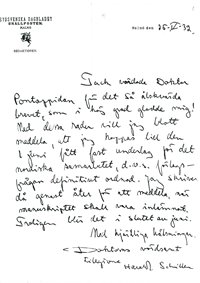 SYDSVENSKA DAGBLADET
SNÄLLPOSTEN
MALMÖ
REDAKTIONEN
Malmö den 25-IV-32
Tack värdade Doktor
Pontoppidan, för det så älskvärda
brevet, som i hög grad gladde mig!
Med dessa rader vill jag blott
meddela, att jag hoppas till den
1 juni fått fast underlag på det
nordiska samarbetet, d.v.s. förlags-
frågan definitivt ordnad. Jag skriver
då genast åter för att meddela, när
manuskriptet skall vara inlämnat.
Troligen blir det i slutet av juni.
Med hjärtliga hälsningar
Doktorns vördsamt
tillgivne
Harald Schiller